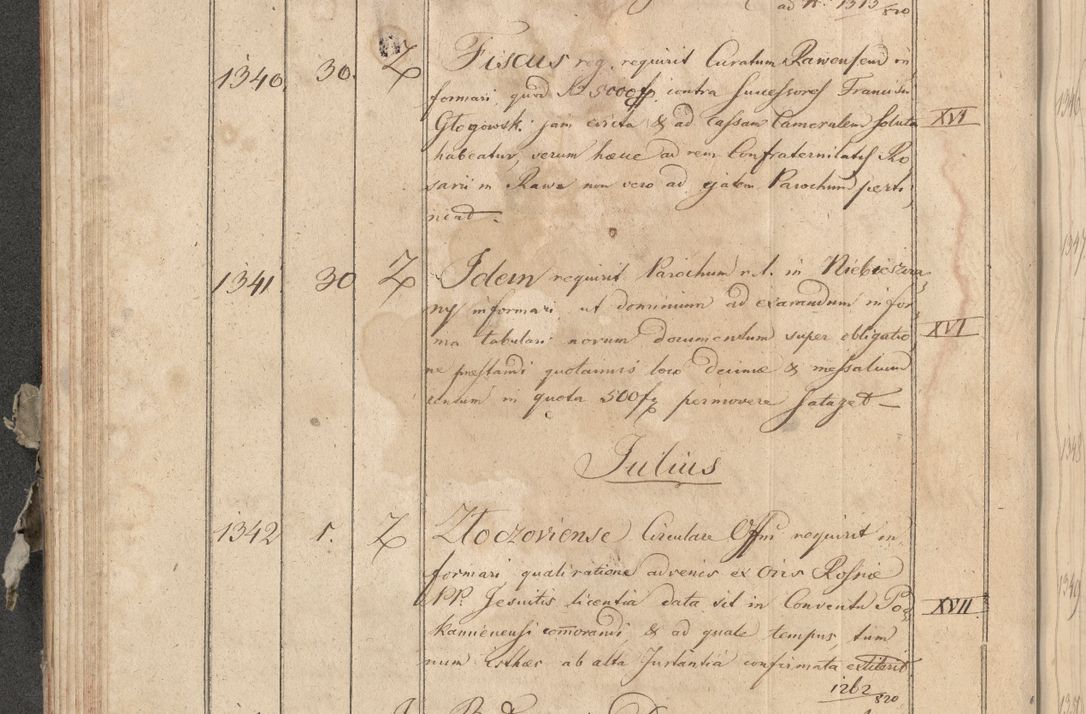 ad N. 1313/820
1340. 30. Z Fiscus reg. requirit Curatum Rawensem in
formari, quod R 5000 f, contra Successores Francisci
Głogowsk: jam evicta & ad Cassam Cameralem soluta XVI
habeatur, verum haece ad rem Confraternitatis Ro
sarii in Rawa non vero ad ejatem Parochum perti,
neat.
1341 30 Z Idem requirit Parochum r. l. in Niebieszcza,
ny informari, ut dominium ad exarandum in for,
ma tabulari novum documentum super obligatio, XVI
ne præstandi quotannis loco decimæ & messalium
in quota 500 f permovere satagat
Julius
1342 1. Z Złoczoviense Circulare Offm requirit in,
formari, quali ratione advenis ex oris Rossiæ
PP. Jesuitis licentia data sit in Conventu Pod XVII
kamienensi com̄orandi, & ad quale tempus, tum
num ab alta Instantia confirmata extiterit
1262/820